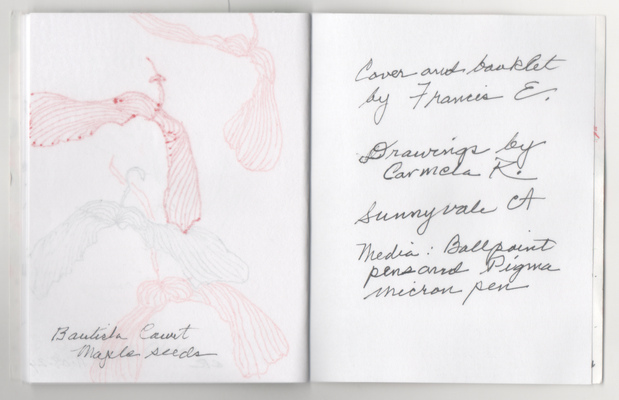 Bautista Court
Maple seeds
Cover and booklet
by Francis E.
Drawings by
Carmela R.
Sunnyvale CA
Media: Ballpoint
pens and Pigma
micron pen